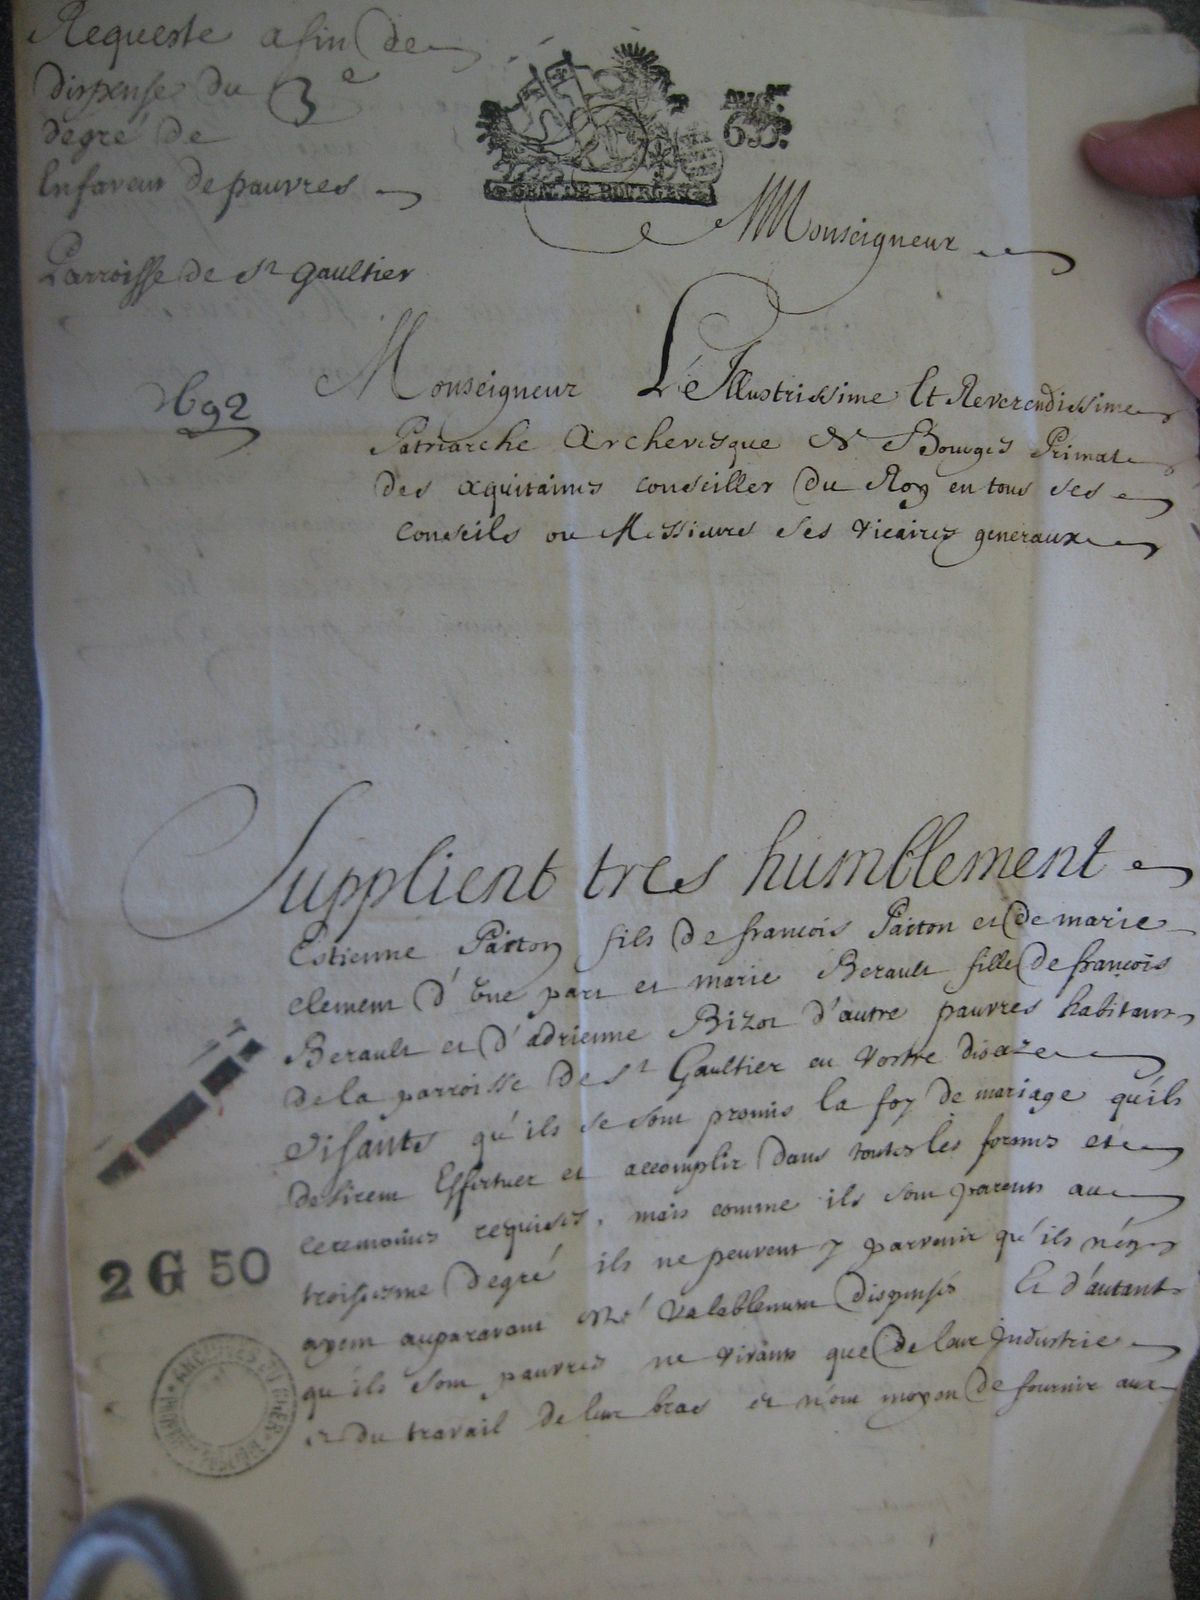 Requeste afin de
dispense du 3e
degré de
En faveur de pauvres
Parroisse de St Gaultier
1692
GEN. DE BOURGES
Monseigneur
Monseigneur L'Illustrissime Et Reverendissime
Patriarche Archevesque de Bourges Primat
des aquitaines conseiller du Roy en tous ses
conseils ou Messieurs ses vicaires generaux
Supplient tres humblement
Estienne Paiton fils de francois Paiton et de marie
clement d'Une part et marie Berault fille de francois
Berault et d'adrienne Bizot d'autre pauvres habitans
de la parroisse de St Gaultier en vostre dioceze
Disants qu'ils se sont promis la foy de mariage qu'ils
desirent Effectuer et accomplir dans toutes les formes et
ceremonies requises, mais comme ils sont parents au
troisiesme degré ils ne peuvent y parvenir qu'ils n'en
ayent auparavant Esté valablement dispensés Et d'autant
qu'ils sont pauvres ne vivants que de leur Industrie
et du travail de leur bras et n'ont moyen de fournir aux
2 G 50
ARCHIVES DU CHER